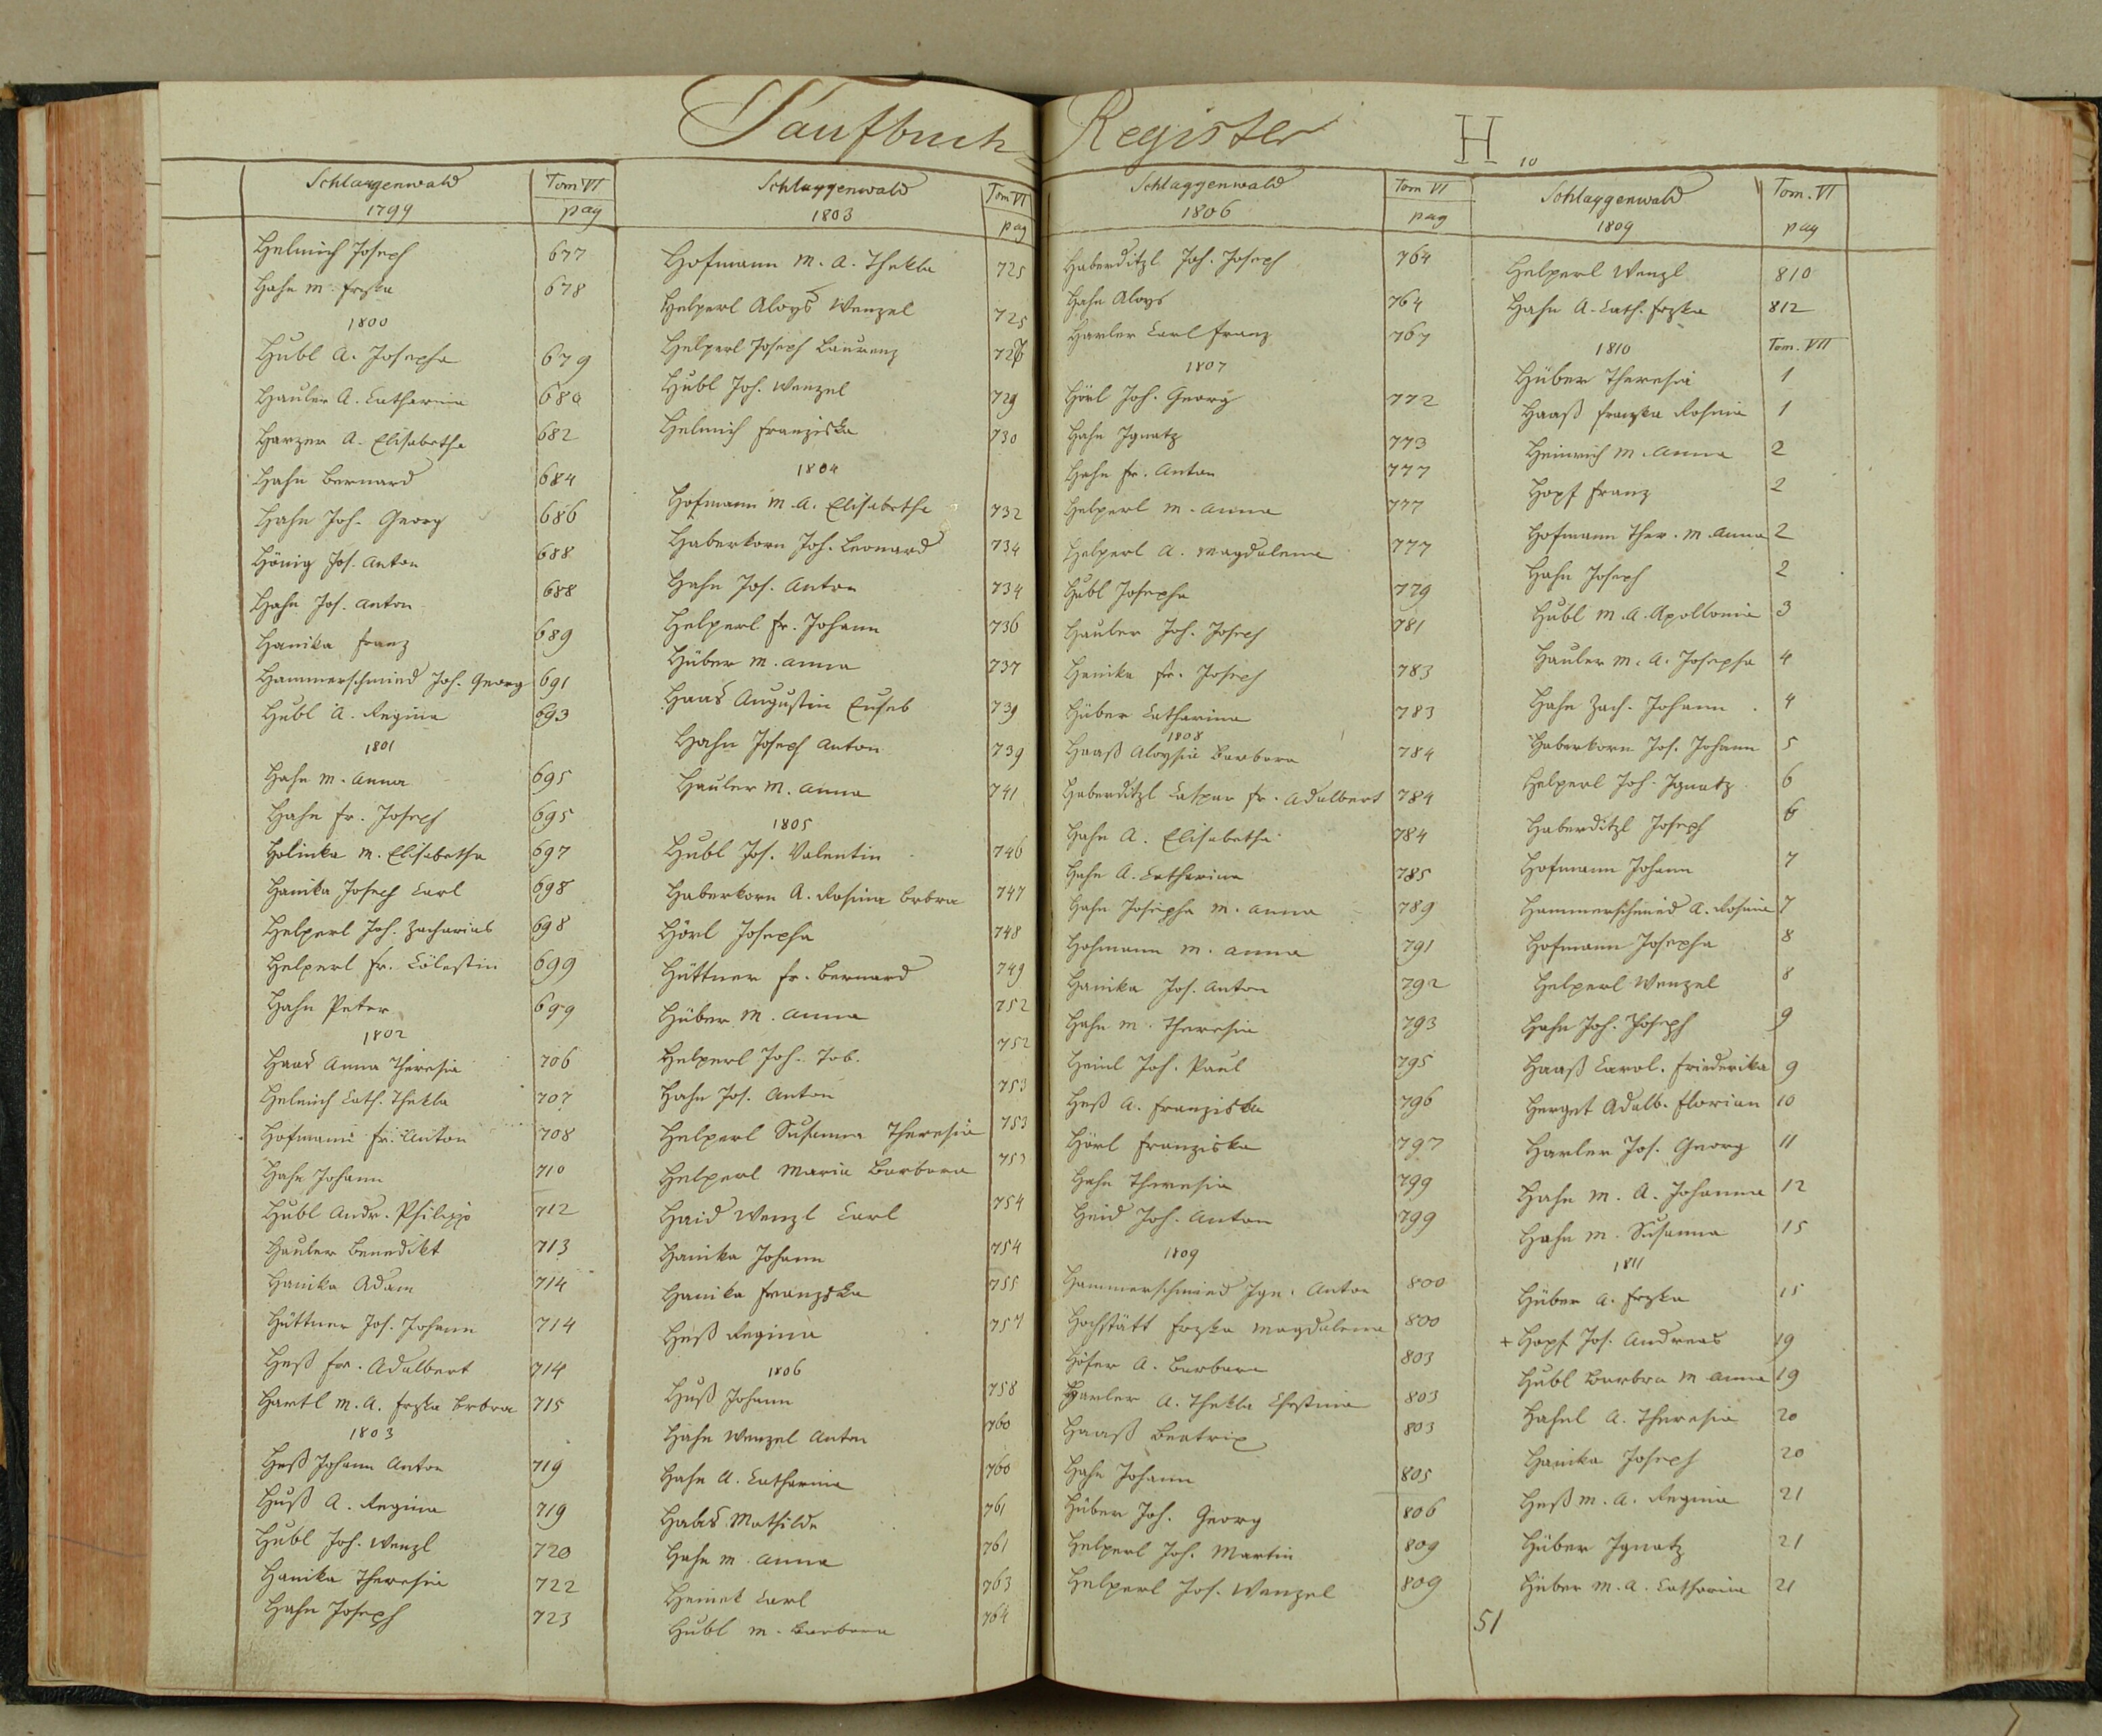 Taufbuch Register H
10
Schlaggenwald Tom VI
1799 pag
Helmich Joseph 677
Hahn M. Frzka 678
1800
Hubl A. Josepha 679
Hauler A. Catharina 680
Harzer A. Elisabetha 682
Hahn Bernard 684
Hahn Joh. Georg 686
Hönig Jos. Anton 688
Hahn Jos. Anton 688
Hanika Franz 689
Hammerschmied Joh. Georg 691
Hubl A. Regina 693
1801
Hahn M. Anna 695
Hahn Fr. Joseph 695
Holinka M. Elisabetha 697
Hanika Joseph Carl 698
Helperl Joh. Zacharias 698
Helperl Fr. Cölestin 699
Hahn Peter 699
1802
Haas Anna Theresia 706
Helmich Cath. Thekla 707
Hofmann Fr. Anton 708
Hahn Johann 710
Hubl Andr. Philipp 712
Hauler Benedikt 713
Hanika Adam 714
Hüttner Jos. Johann 714
Heß Fr. Adalbert 714
Hartl M. A. Frzka Brbra 715
1803
Heß Johann Anton 719
Huß A. Regina 719
Hubl Joh. Wenzl 720
Hanika Theresia 722
Hahn Joseph 723
Schlaggenwald Tom VI
1803 pag
Hofmann M. A. Thekla 725
Helperl Aloys Wenzel 725
Helperl Joseph Laurenz
Hubl Joh. Wenzel 729
Helmich Franziska 730
1804
Hofmann M. A. Elisabetha 732
Haberkorn Joh. Leonard 734
Hahn Jos. Anton 734
Helperl Fr. Johann 736
Hüber M. Anna 737
Haas Augustin Euseb 739
Hahn Joseph Anton 739
Hauler M. Anna 741
1805
Hubl Jos. Valentin 746
Haberkorn A. Rosina Brbra 747
Hörl Josepha 748
Hüttner Fr. Bernard 749
Hüber M. Anna 752
Helperl Joh. Tob. 752
Hahn Jos. Anton 753
Helperl Susanna Theresia 753
Helperl Maria Barbara 753
Haid Wenzl Carl 754
Hanika Johann 754
Hanika Franzska 755
Heß Regina 757
1806
Huß Johann 758
Hahn Wenzel Anton 760
Hahn A. Catharina 760
Haas Mathilde 761
Hahn M. Anna 761
Heinek Carl 763
Hubl M. Barbara 764
Schlaggenwald Tom VI
1806 pag
Haberditzl Joh. Joseph 764
Hahn Aloys 764
Harler Carl Franz 767
1807
Hörl Joh. Georg 772
Hahn Ignatz 773
Hahn Fr. Anton 777
Helperl M. Anna 777
Helperl A. Magdalena 777
Hubl Josepha 779
Hauler Joh. Joseph 781
Hanika Fr. Joseph 783
Hüber Catharina 783
1808
Haaß Aloysia Barbara 784
Haberditzl Caspar Fr. Adalbert 784
Hahn A. Elisabetha 784
Hahn A. Catharina 785
Hahn Josepha M. Anna 789
Hohmann M. Anna 791
Hanika Jos. Anton 792
Hahn M. Theresia 793
Heinl Joh. Paul 795
Heß A. Franziska 796
Hörl Franziska 797
Hahn Theresia 799
Heid Joh. Anton 799
1809
Hammerschmied Ign. Anton 800
Hochstätt Frzka Magdalena 800
Höfer A. Barbara 803
Harler A. Thekla 803
Haaß Beatrix 803
Hahn Johann 805
Hüber Joh. Georg 806
Helperl Joh. Martin 809
Helperl Jos. Wenzel 809
Schlaggenwald Tom. VI
1809 pag
Helperl Wenzl 810
Hahn A. Cath. Frzka 812
1810 Tom. VII
Hüber Theresia 1
Haaß Franzka Rosina 1
Heinrich M. Anna 2
Hopf Franz 2
Hofmann Ther. M. Anna 2
Hahn Joseph 2
Hubl M. A. Apollonia 3
Hauler M. A. Josepha 4
Hahn Zach. Johann 4
Haberkorn Jos. Johann 5
Helperl Joh. Ignatz 6
Haberditzl Joseph 6
Hofmann Johann 7
Hammerschmied A. Rosina 7
Hofmann Josepha 8
Helperl Wenzel 8
Hahn Joh. Joseph 9
Haaß Carol. Friederika 9
Herget Adalb. Florian 10
Harler Jos. Georg 11
Hahn M. A. Johanna 12
Hahn M. Susanna 15
1811
Hüber A. Frzka 15
+ Hopf Jos. Andreas 19
Hubl Barbra M Anna 19
Hahnl A. Theresia 20
Hanika Joseph 20
Heß M. A. Regina 21
Hüber Ignatz 21
Hüber M. A. Catharina 21
51